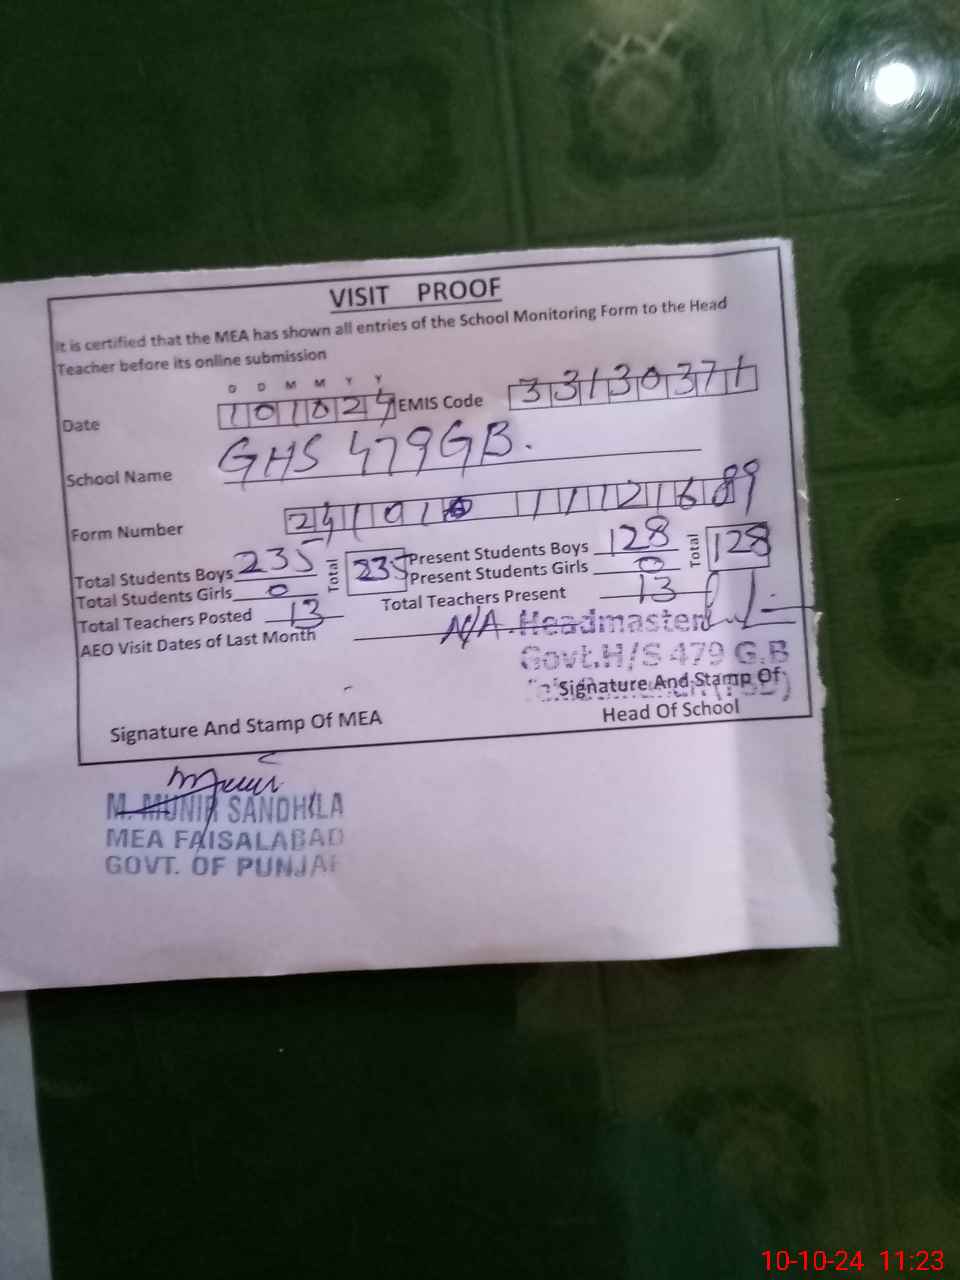 VISIT PROOF
It is certified that the MEA has shown all entries of the School Monitoring Form to the Head
Teacher before its online submission
D D M M Y Y
Date 101024 EMIS Code 33130371
School Name GHS 479GB.
Form Number
Total Students Boys 235 Total 235 Present Students Boys 128 Total 128
Total Students Girls 0 Present Students Girls 0
Total Teachers Posted 13 Total Teachers Present 13
AEO Visit Dates of Last Month N/A
Headmaster
Govt.H/S 479 G.B
Signature And Stamp Of MEA
Signature And Stamp Of
Head Of School
M. MUNIR SANDHILA
MEA FAISALABAD
GOVT. OF PUNJAB
10-10-24 11:23